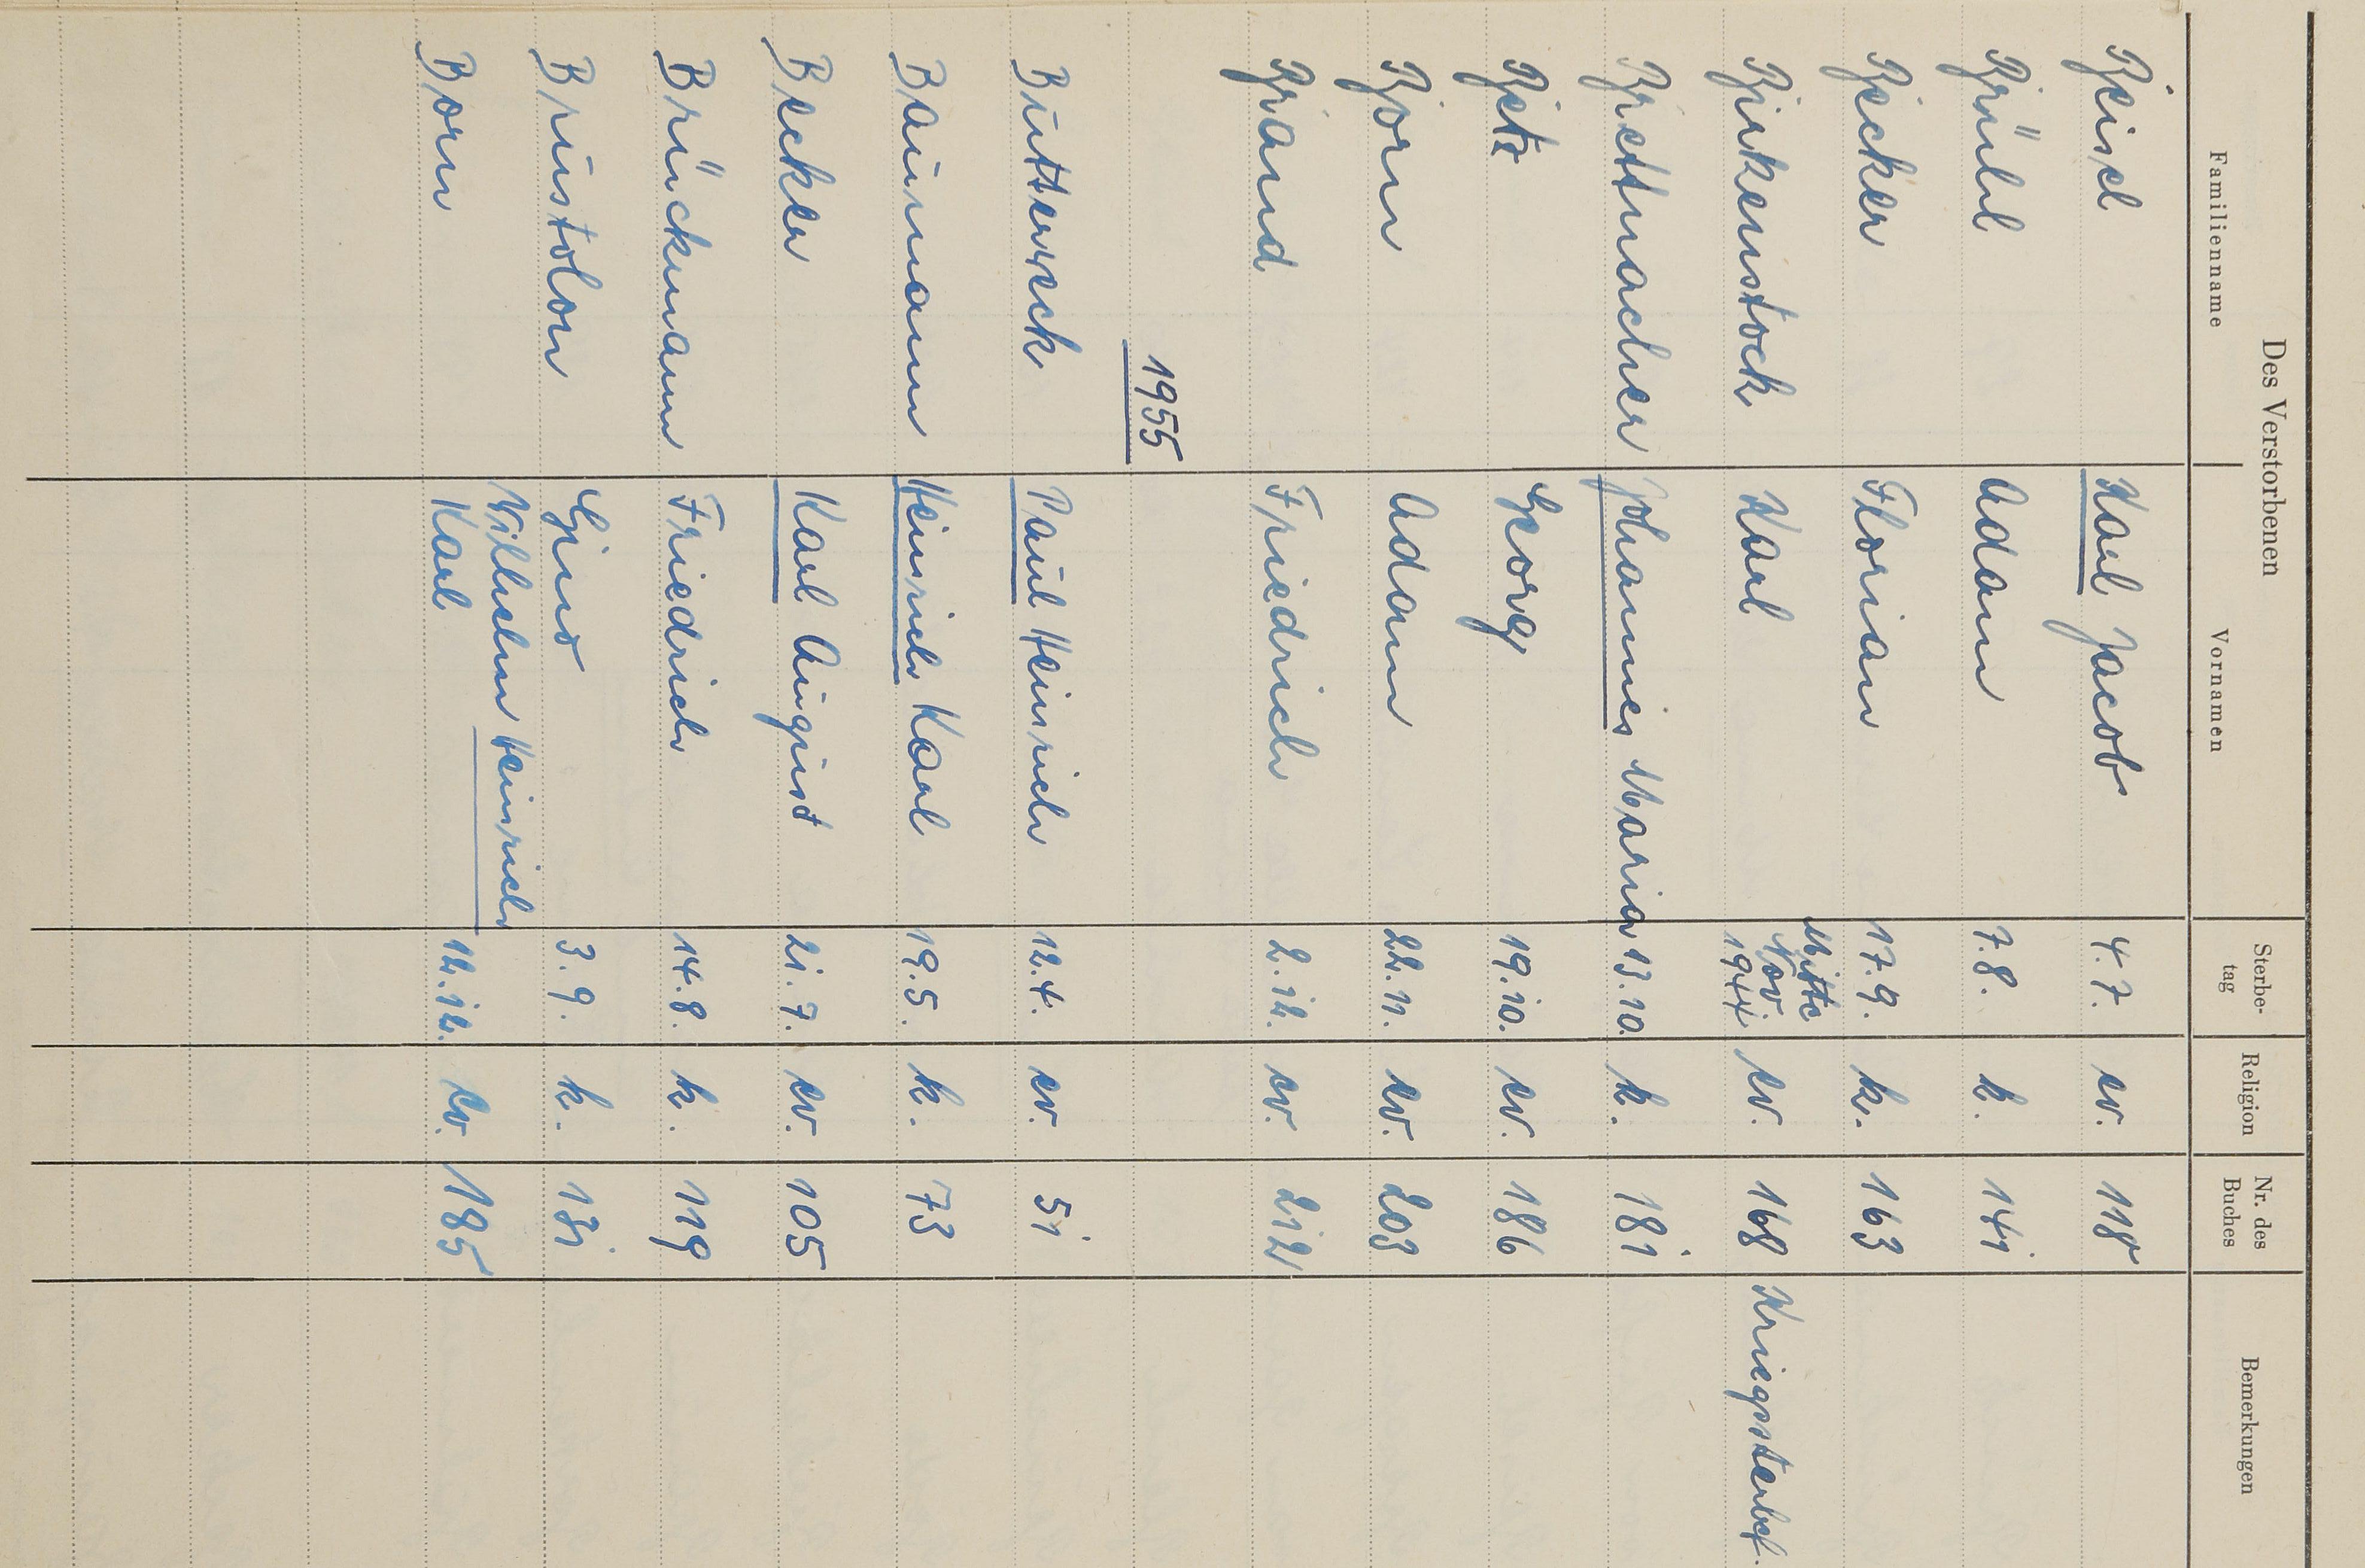 Des Verstorbenen
Familienname Vornamen Sterbe-tag Religion Nr. des Buches Bemerkungen
Beisel Karl Jacob 4.7. ev. 118
Brühl Adam 7.8. k. 141
Becker Florian 17.9. k. 163
Birkenstock Karl Mitte Nov. 1944 ev. 168 Kriegssterbef.
Brettnacher Johannes Maria 13.10. k. 181
Betz Georg 19.10. ev. 186
Born Adam 22.11. ev. 203
Brand Friedrich 2.12. ev. 212
1955
Butterweck Paul Heinrich 12.4. ev. 51
Baumann Heinrich Karl 19.5. k. 73
Becker Karl August 21.7. ev. 105
Brückmann Friedrich 14.8. k. 119
Brustolon Gino 3.9. k. 131
Born Wilhelm Heinrich Karl 12.12. ev. 185